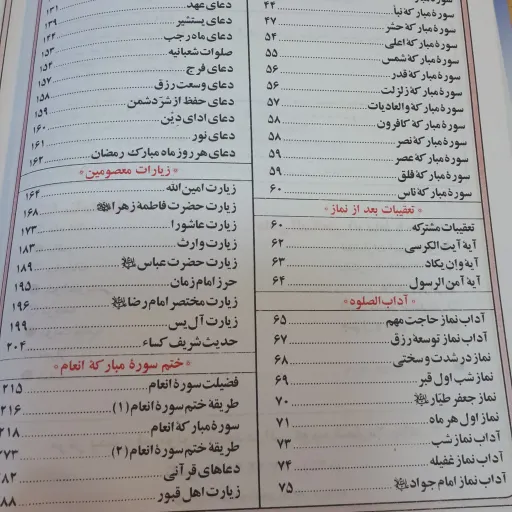 سورهٔ مبارکهٔ نبأ ۴۴
سورهٔ مبارکهٔ حشر ۴۷
سورهٔ مبارکهٔ اعلی ۵۴
سورهٔ مبارکهٔ شمس ۵۵
سورهٔ مبارکهٔ قدر ۵۶
سورهٔ مبارکهٔ زلزلت ۵۶
سورهٔ مبارکهٔ والعادیات ۵۷
سورهٔ مبارکهٔ کافرون ۵۸
سورهٔ مبارکهٔ نصر ۵۸
سورهٔ مبارکهٔ عصر ۵۹
سورهٔ مبارکهٔ فلق ۵۹
سورهٔ مبارکهٔ ناس ۶۰
* تعقیبات بعد از نماز *
تعقیبات مشترکه ۶۰
آیهٔ آیت الکرسی ۶۲
آیهٔ وان یکاد ۶۳
آیهٔ آمن الرسول ۶۴
* آداب الصلوه *
آداب نماز حاجت مهم ۶۵
آداب نماز توسعهٔ رزق ۶۷
نماز در شدت و سختی ۶۸
نماز شب اول قبر ۶۹
نماز جعفر طیار ۷۰
نماز اول هر ماه ۷۱
آداب نماز شب ۷۳
آداب نماز غفیله ۷۴
آداب نماز امام جواد ۷۵
دعای عهد ۱۳۱
دعای یستشیر ۱۳۹
دعای ماه رجب ۱۴۴
صلوات شعبانیه ۱۵۳
دعای فرج ۱۵۴
دعای وسعت رزق ۱۵۷
دعای حفظ از شرّ دشمن ۱۵۸
دعای ادای دِیْن ۱۵۹
دعای نور ۱۶۰
دعای هر روز ماه مبارک رمضان ۱۶۱
۱۶۲
* زیارات معصومین *
زیارت امین الله ۱۶۴
زیارت حضرت فاطمهٔ زهرا ۱۶۸
زیارت عاشورا ۱۷۳
زیارت وارث ۱۸۳
زیارت حضرت عباس ۱۸۹
حرز امام زمان ۱۹۵
زیارت مختصر امام رضا ۱۹۶
زیارت آل یس ۱۹۹
حدیث شریف کساء ۲۰۴
* ختم سورهٔ مبارکهٔ انعام *
فضیلت سورهٔ انعام ۲۱۵
طریقهٔ ختم سورهٔ انعام (۱) ۲۱۶
سورهٔ مبارکهٔ انعام ۲۱۸
طریقهٔ ختم سورهٔ انعام (۲) ۲۷۳
دعاهای قرآنی ۲۸۲
زیارت اهل قبور ۲۸۸